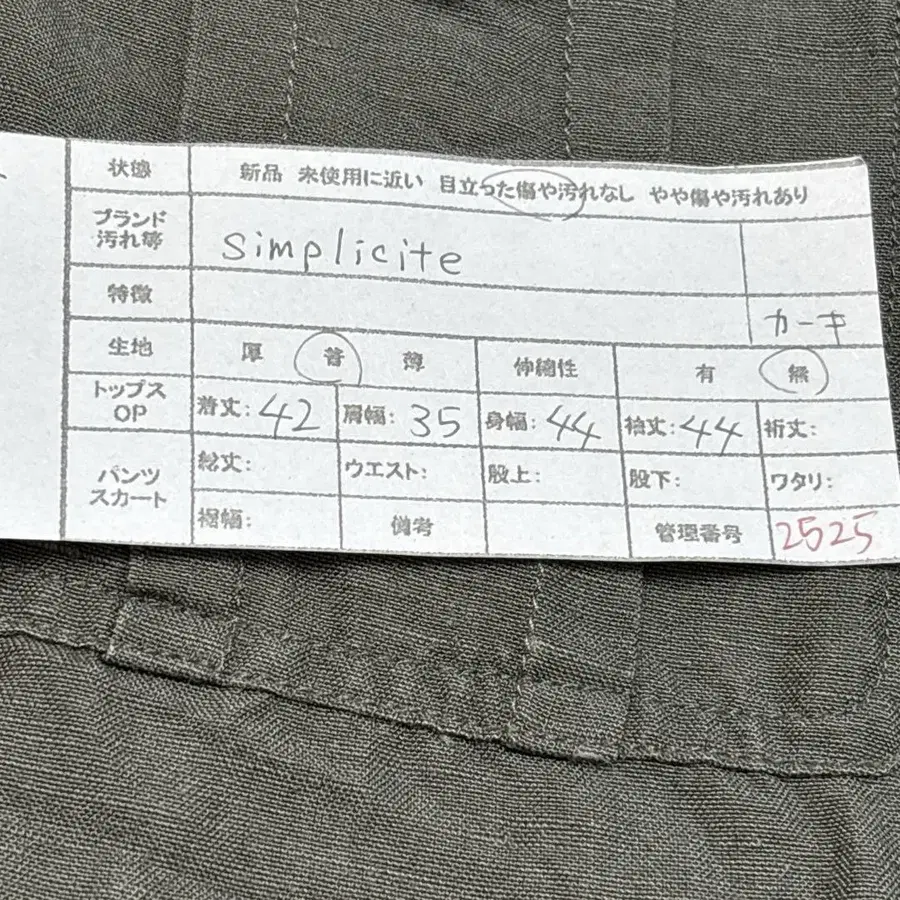 状態 新品 未使用に近い 目立った傷や汚れなし やや傷や汚れあり
ブランド
汚れ等 simplicite
特徴 カーキ
生地 厚 普 薄 伸縮性 有 無
トップス
OP 着丈:42 肩幅:35 身幅:44 袖丈:44 裄丈:
パンツ
スカート 総丈: ウエスト: 股上: 股下: ワタリ:
裾幅: 備考 管理番号 2525